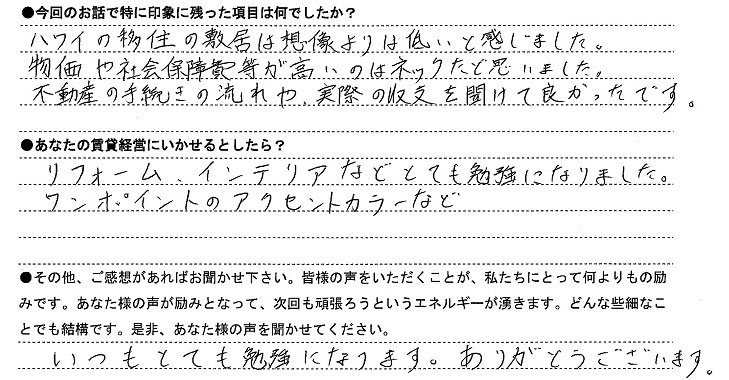 ●今回のお話で特に印象に残った項目は何でしたか？
ハワイの移住の敷居は想像よりは低いと感じました。
物価や社会保障費等が高いのはネックだと思いました。
不動産の手続きの流れや、実際の収支を聞けて良かったです。
●あなたの賃貸経営にいかせるとしたら？
リフォーム、インテリアなどとても勉強になりました。
ワンポイントのアクセントカラーなど
●その他、ご感想があればお聞かせ下さい。皆様の声をいただくことが、私たちにとって何よりもの励
みです。あなた様の声が励みとなって、次回も頑張ろうというエネルギーが湧きます。どんな些細なこ
とでも結構です。是非、あなた様の声を聞かせてください。
いつもとても勉強になります。ありがとうございます。